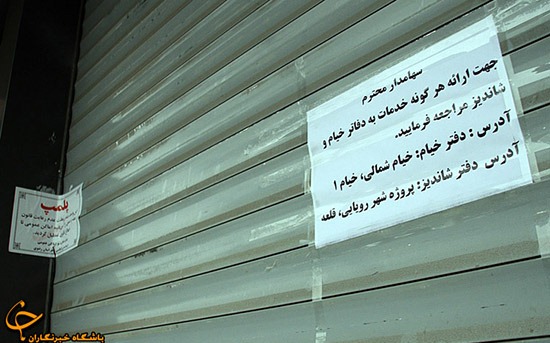 سهامدار محترم
جهت ارائه هر گونه خدمات به دفاتر خیام و
شاندیز مراجعه فرمایید.
آدرس : دفتر خیام: خیام شمالی، خیام ۱
آدرس دفتر شاندیز: پروژه شهر رویایی، قلعه
پلمپ
رعایت قانون
اماکن عمومی
گردید.
باشگاه خبرنگاران